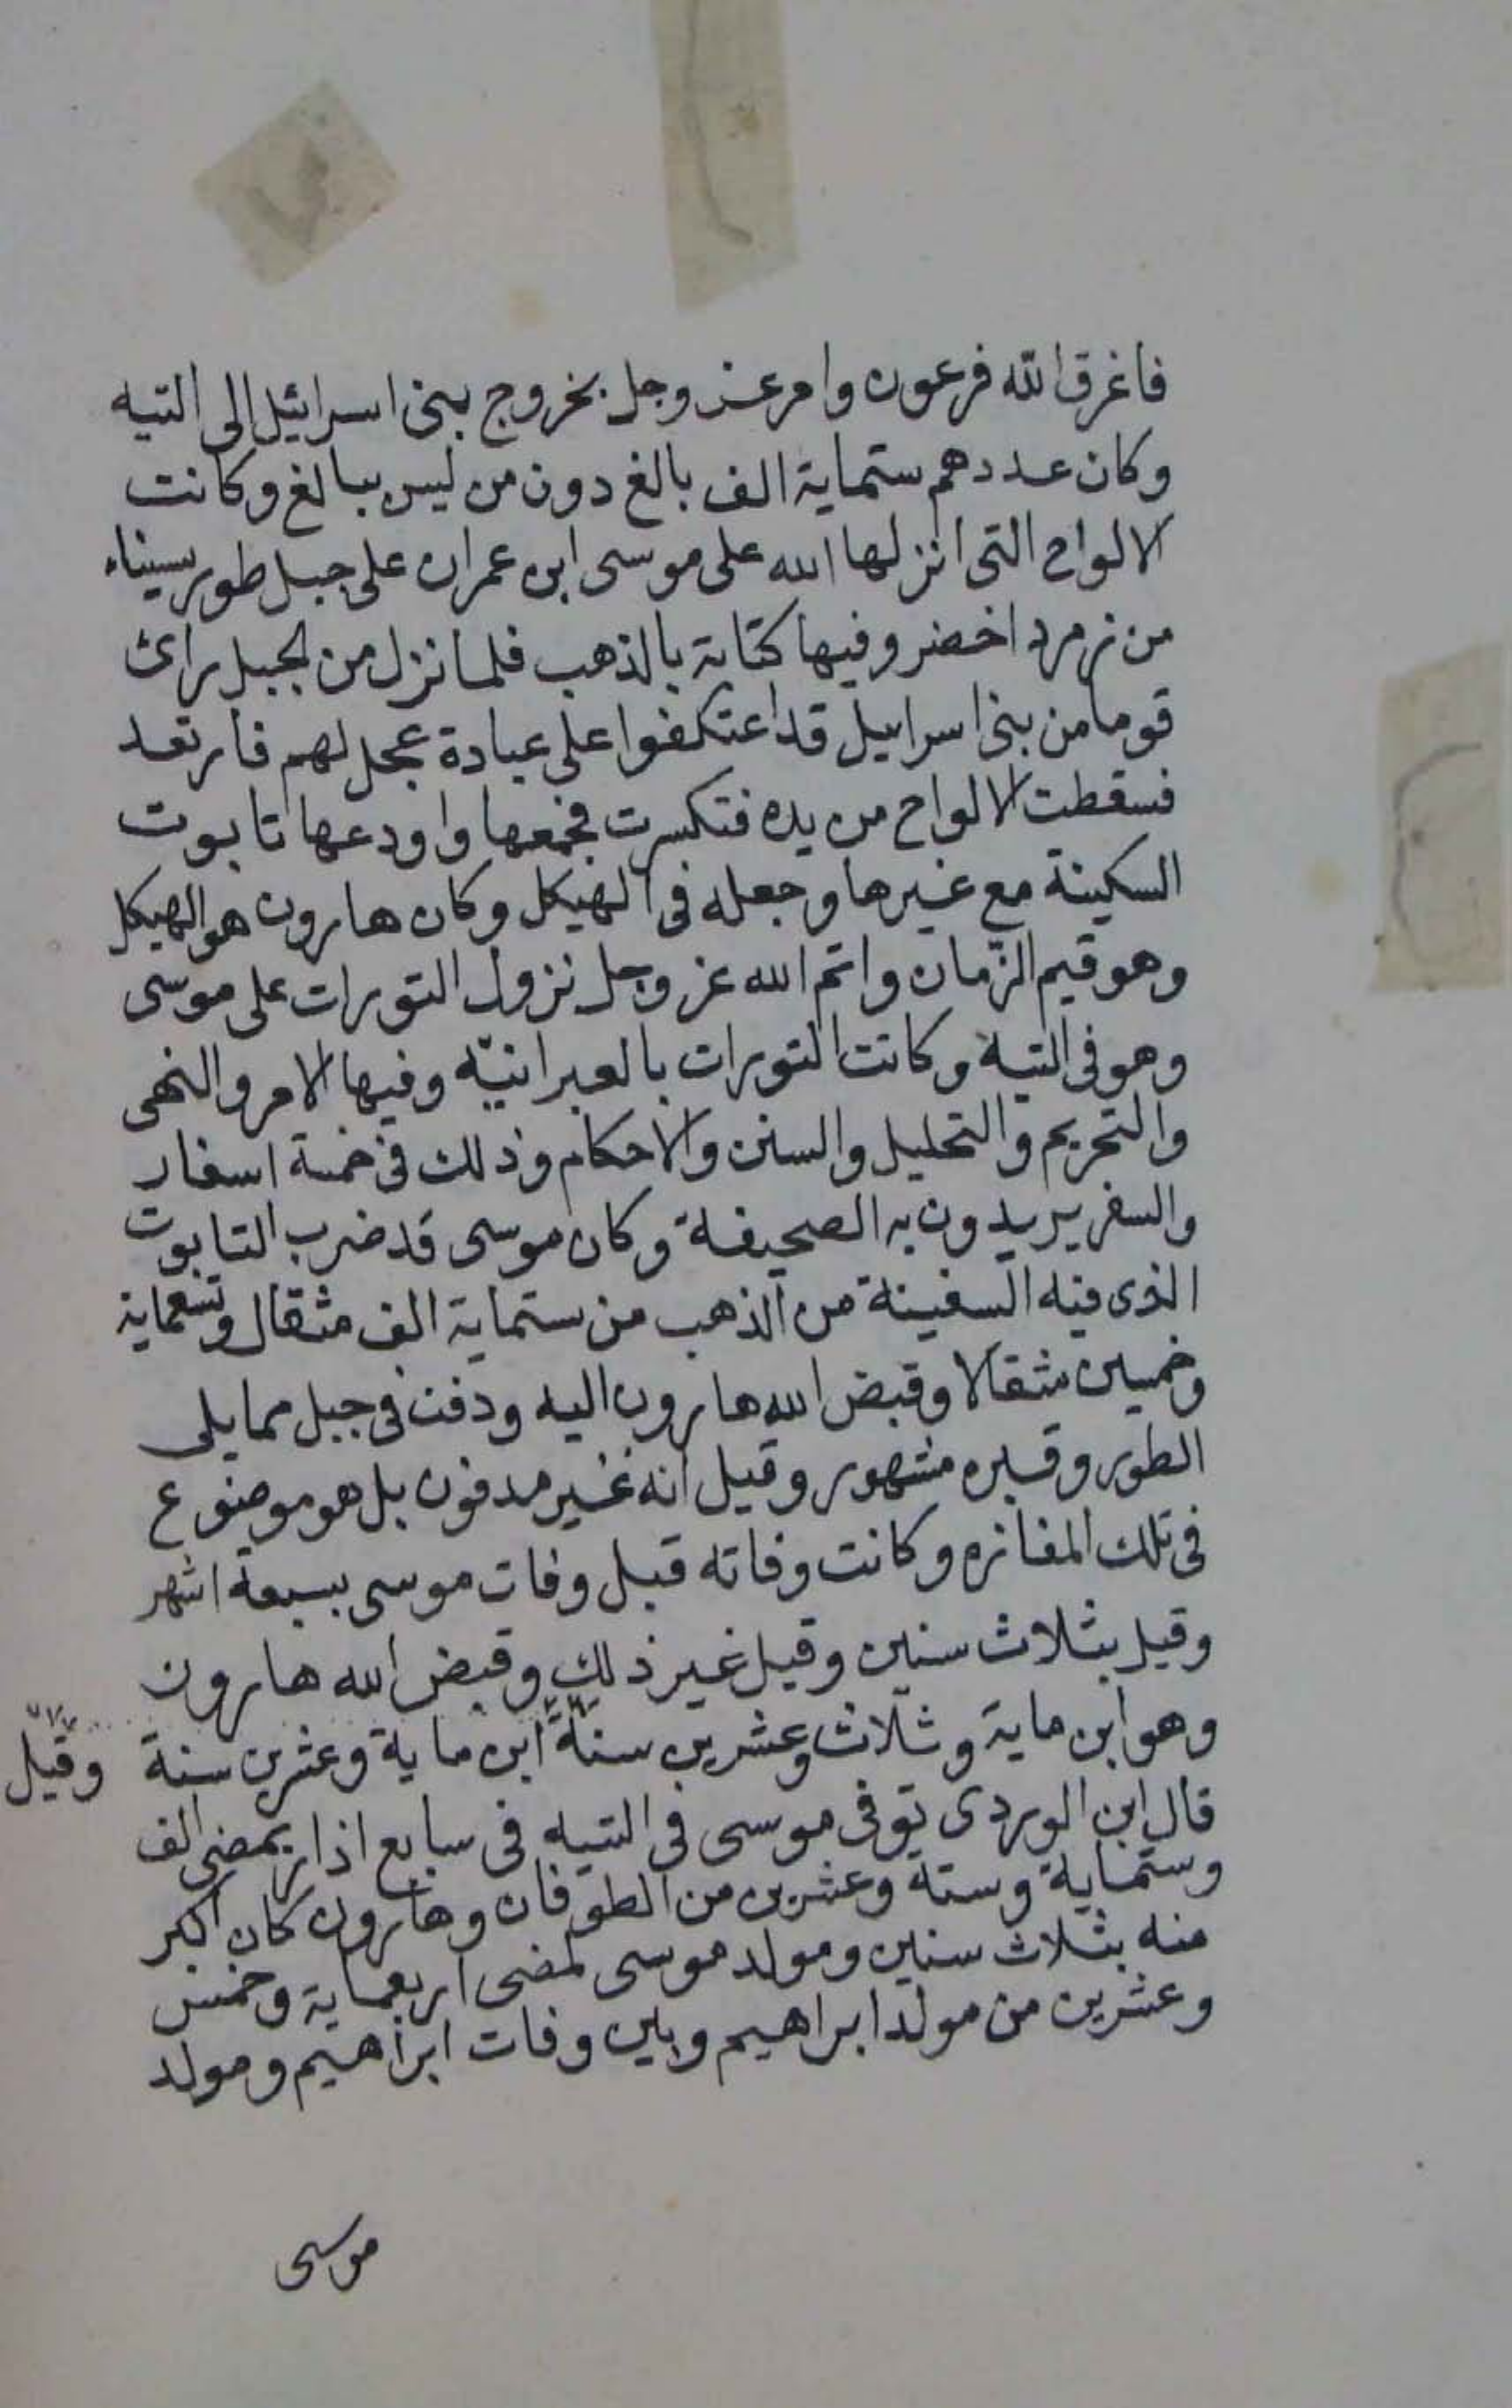 فاغرق الله فرعون وامر عز وجل بخروج بنى اسرائيل الى التيه
وكان عددهم ستماية الف بالغ دون من ليس ببالغ وكانت
الالواح التى انزلها الله على موسى ابن عمران على جبل طور سيناء
من زمرد اخضر وفيها كتابة بالذهب فلما نزل من الجبل رائ
قوما من بنى اسراييل قد اعتكفوا على عبادة عجل لهم فارتعد
فسقطت الالواح من يده فتكسرت فجمعها واودعها تابوت
السكينة مع غيرها وجعله فى الهيكل وكان هارون هو الهيكل
وهو قيم الزمان واتم الله عز وجل نزول التورات على موسى
وهو فى التيه وكانت التورات بالعبرانيّه وفيها الامر والنهى
والتحريم والتحليل والسنن والاحكام وذلك فى خمسة اسفار
والسفر يريدون به الصحيفة وكان موسى قد ضرب التابوت
الذى فيه السفينة من الذهب من ستماية الف مثقال وتسعماية
وخمسين مثقالا وقبض الله هارون اليه ودفن فى جبل مما يلى
الطور وقبره مشهور وقيل انه غير مدفون بل هو موضوع
فى تلك المفازه وكانت وفاته قبل وفات موسى بسبعة اشهر
وقيل بثلاث سنين وقيل غير ذلك وقبض الله هارون
وهو ابن ماية وثلاث وعشرين سنةً ابن ماية وعشرين سنة
وقيل
قال ابن الوردى توفى موسى فى التيه فى سابع اذار بمضى الف
وستماية وستة وعشرين من الطوفان وهارون كان اكبر
منه بثلاث سنين ومولد موسى لمضى اربعماية وخمس
وعشرين من مولد ابراهيم وبين وفات ابراهيم ومولد
موسى